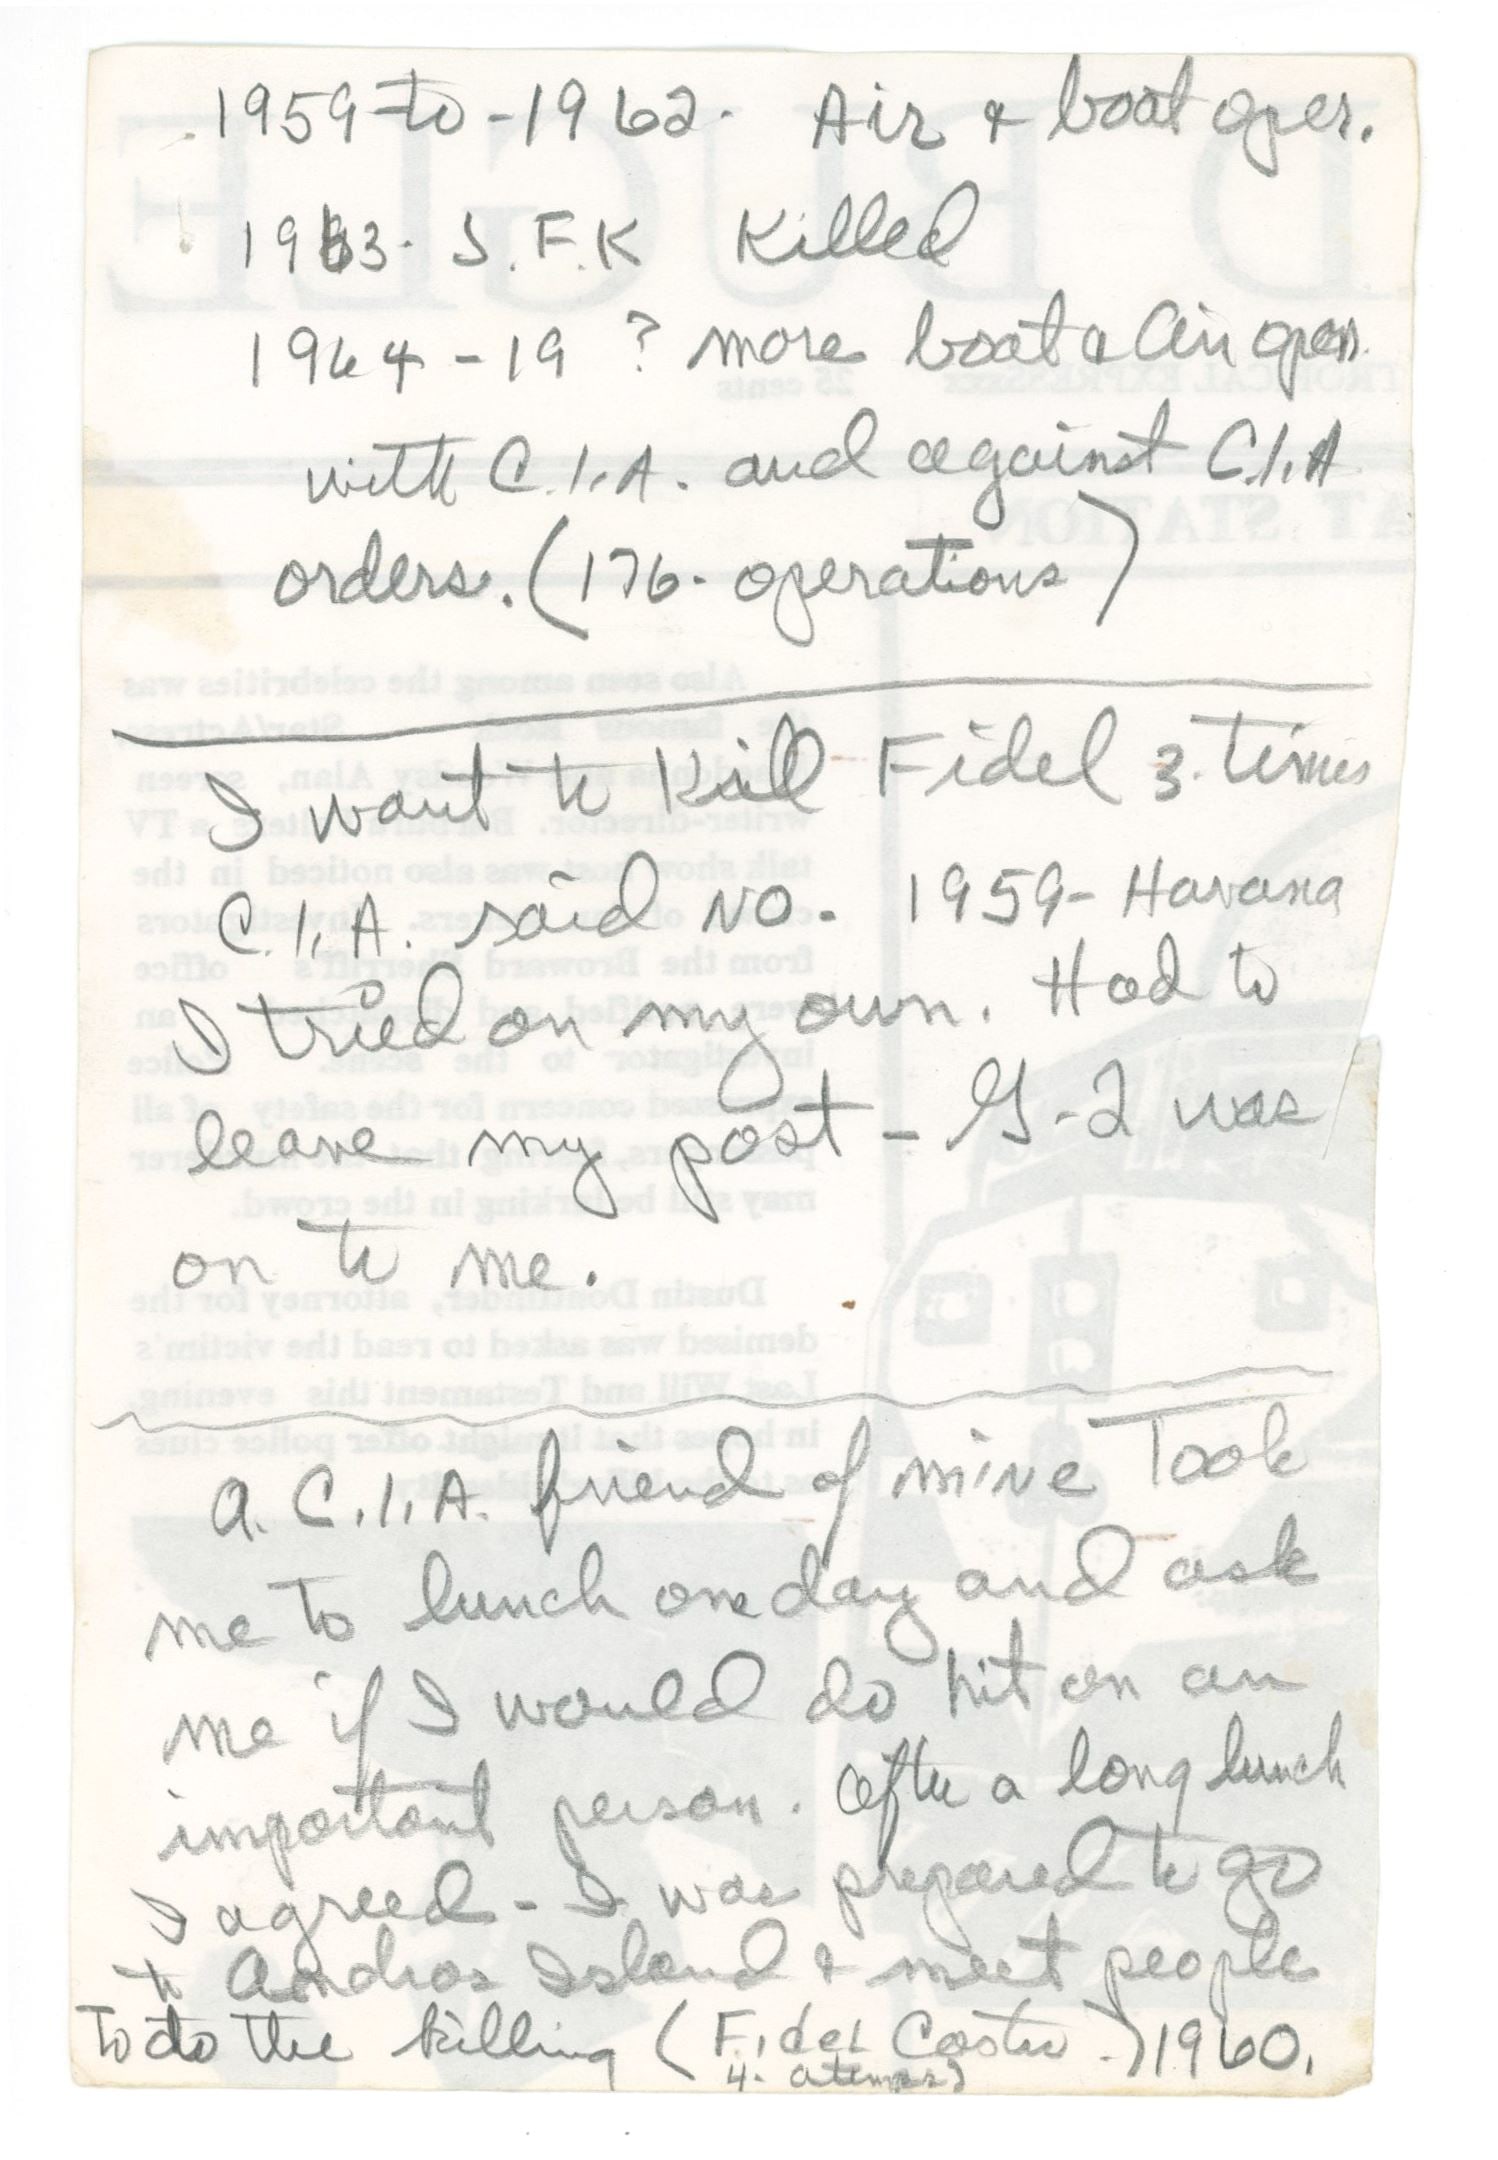 1959-to-1962. Air & boat oper.
1963. J.F.K Killed
1964-19 ? more boat & Air oper.
with C.I.A. and against C.I.A
orders. (176. operations)
I want to Kill Fidel 3. times
C.I.A. said NO. 1959- Havana
I tried on my own. Had to
leave my post - G-2 was
on to me.
a. C.I.A. friend of mine Took
me to lunch one day and ask
me if I would do hit on an
important person. after a long lunch
I agreed - I was prepared to go
to Andros Island & meet people
To do the killing (Fidel Castro.) 1960.
4. atemps)